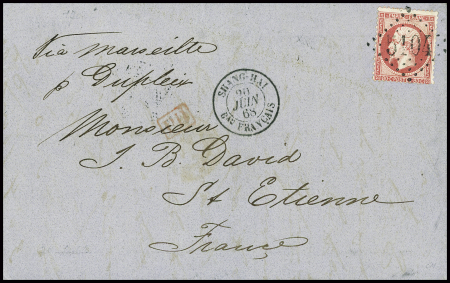 via Marseille
p Dupleix
SHANG-HAI
20
JUIN
68
Bau FRANÇAIS
5104
Monsieur
J. B. David
St Etienne
France